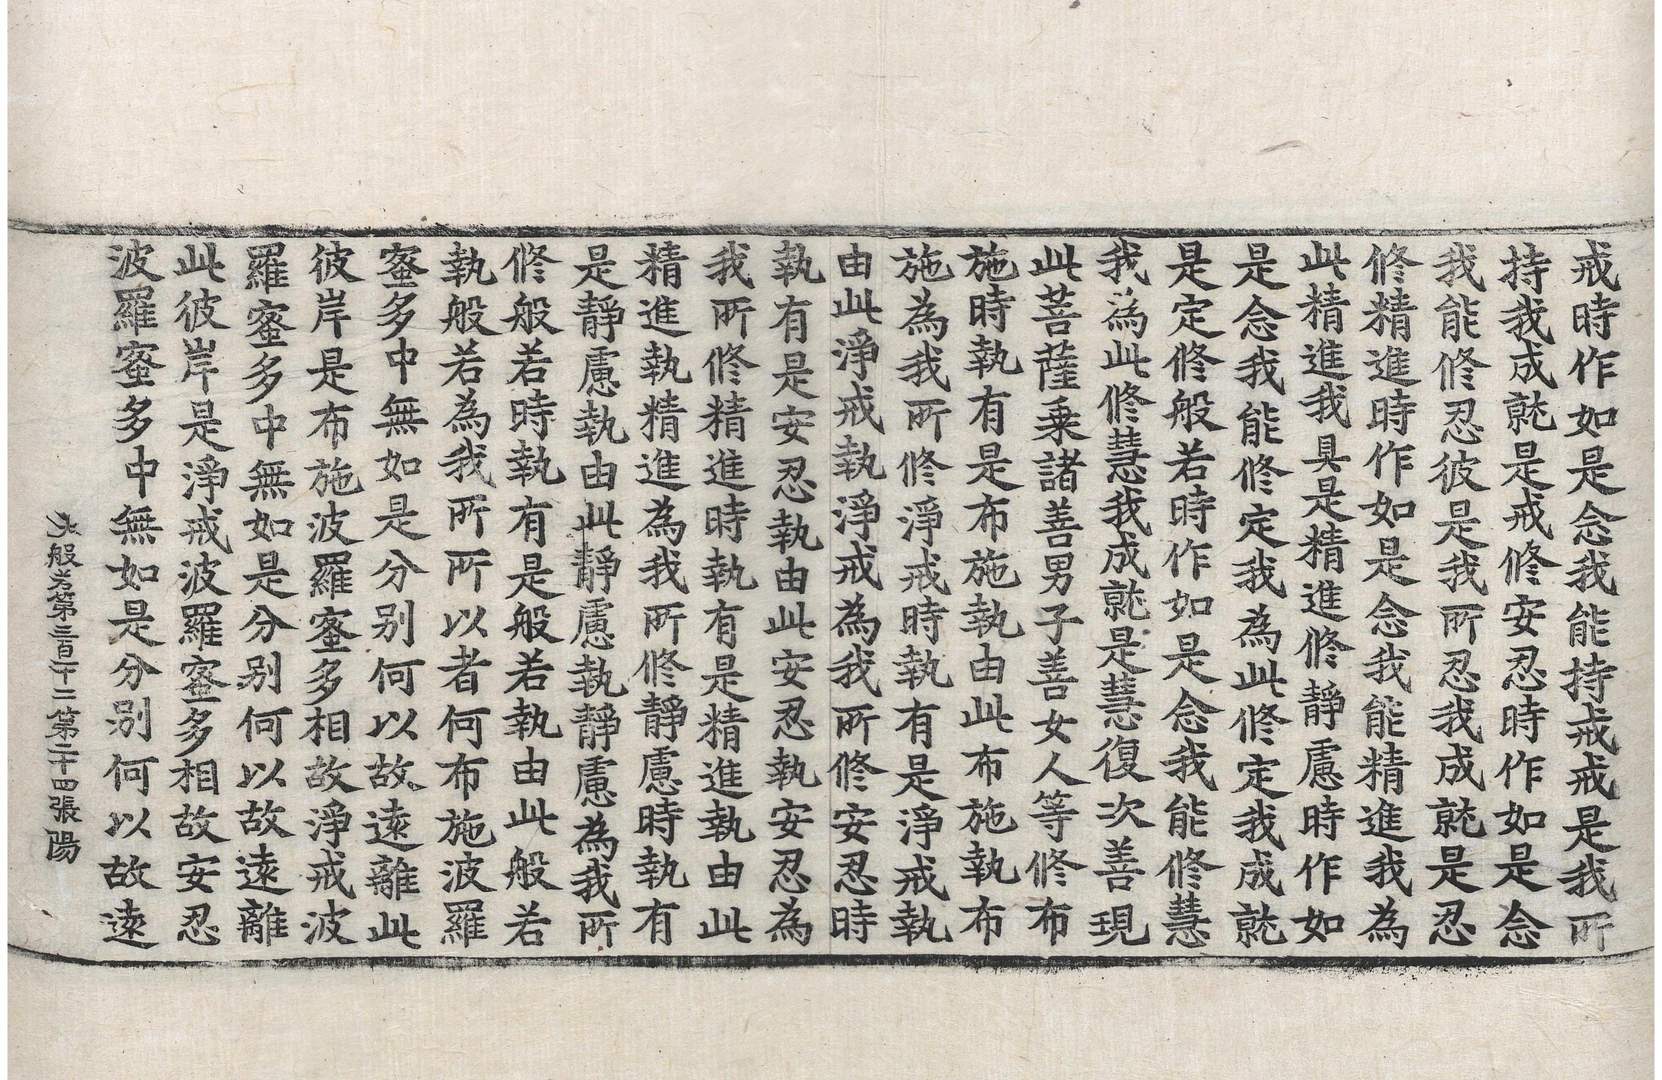 戒時作如是念我能持戒戒是我所
持我成就是戒修安忍時作如是念
我能修忍彼是我所忍我成就是忍
修精進時作如是念我能精進我為
此精進我具是精進修靜慮時作如
是念我能修定我為此修定我成就
是定修般若時作如是念我能修慧
我為此修慧我成就是慧復次善現
此菩薩乗諸善男子善女人等修布
施時執有是布施執由此布施執布
施為我所修淨戒時執有是淨戒執
由此淨戒執淨戒為我所修安忍時
執有是安忍執由此安忍執安忍為
我所修精進時執有是精進執由此
精進執精進為我所修靜慮時執有
是靜慮執由此靜慮執靜慮為我所
修般若時執有是般若執由此般若
執般若為我所所以者何布施波羅
蜜多中無如是分别何以故遠離此
彼岸是布施波羅蜜多相故淨戒波
羅蜜多中無如是分别何以故遠離
此彼岸是淨戒波羅蜜多相故安忍
波羅蜜多中無如是分别何以故遠
大般若第三百十二第二十四張陽